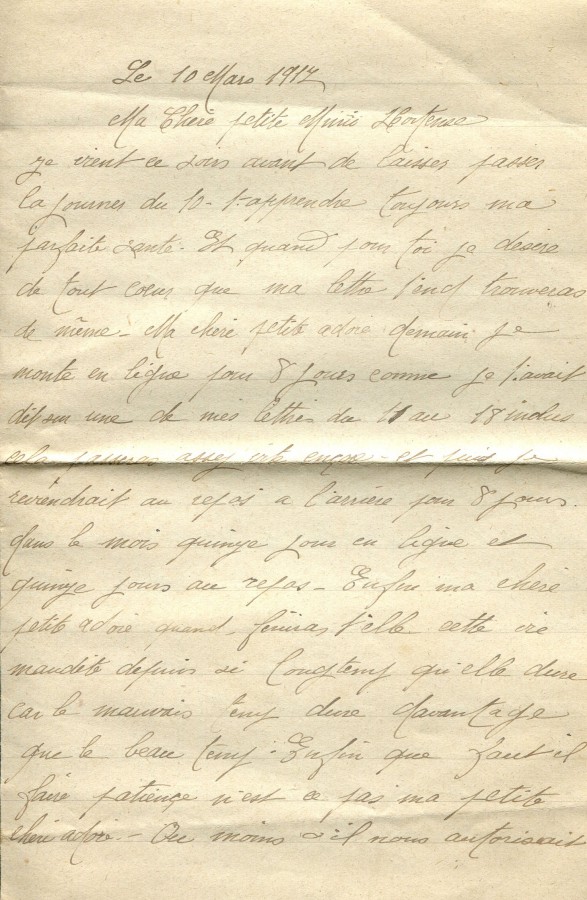 Le 10 Mars 1917
Ma Chere petite Mimi Hortense
je vient ce soirs avant de laisser passer
la journer du 10 - t-apprendre toujours ma
parfaite sante - Et quand pour toi je desire
de tout cœur que ma lettre t'end trouveras
de même - Ma chere petite adoré demain je
monte en ligne pour 8 jours comme je t'avait
dit sur une de mes lettres du 11 au 18 inclus
cela passeras assez vite encore - et puis je
reviendrait au repos a l'arrière pour 8 jours.
dans le mois quinze jour en ligne et
quinze jours au repos - Enfin ma chère
petite adoré quand - finiras t'elle cette vie
maudite depuis si longtemp qu'elle dure
car le mauvais temp dure davantage
que le beau temp. Enfin que faut il
faire patience n'est ce pas ma petite
cheri adoré - Ou moins s'il nous autorisait